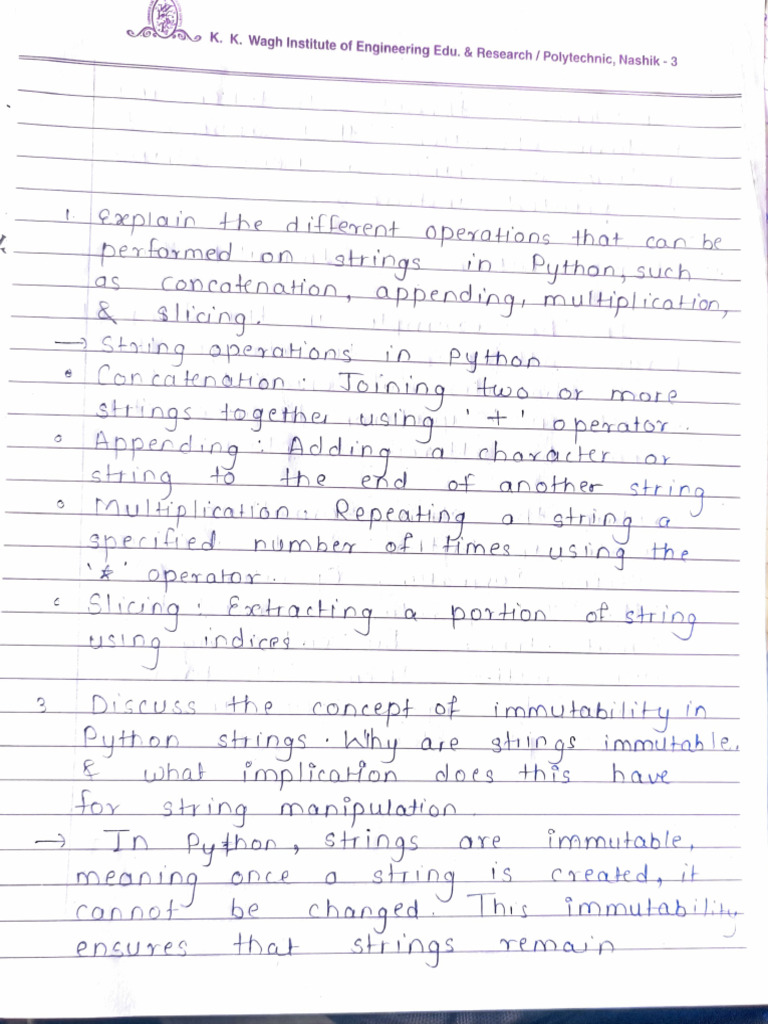 K. K. Wagh Institute of Engineering Edu. & Research / Polytechnic, Nashik - 3
1. Explain the different operations that can be
performed on strings in Python, such
as concatenation, appending, multiplication,
& slicing.
→ String operations in Python
• Concatenation: Joining two or more
strings together using '+' operator.
∘ Appending: Adding a character or
string to the end of another string
∘ Multiplication: Repeating a string a
specified number of times using the
'*' operator.
∘ Slicing: Extracting a portion of string
using indices.
3 Discuss the concept of immutability in
Python strings. Why are strings immutable.
& what implication does this have
for string manipulation
→ In Python, strings are immutable,
meaning once a string is created, it
cannot be changed. This immutability
ensures that strings remain